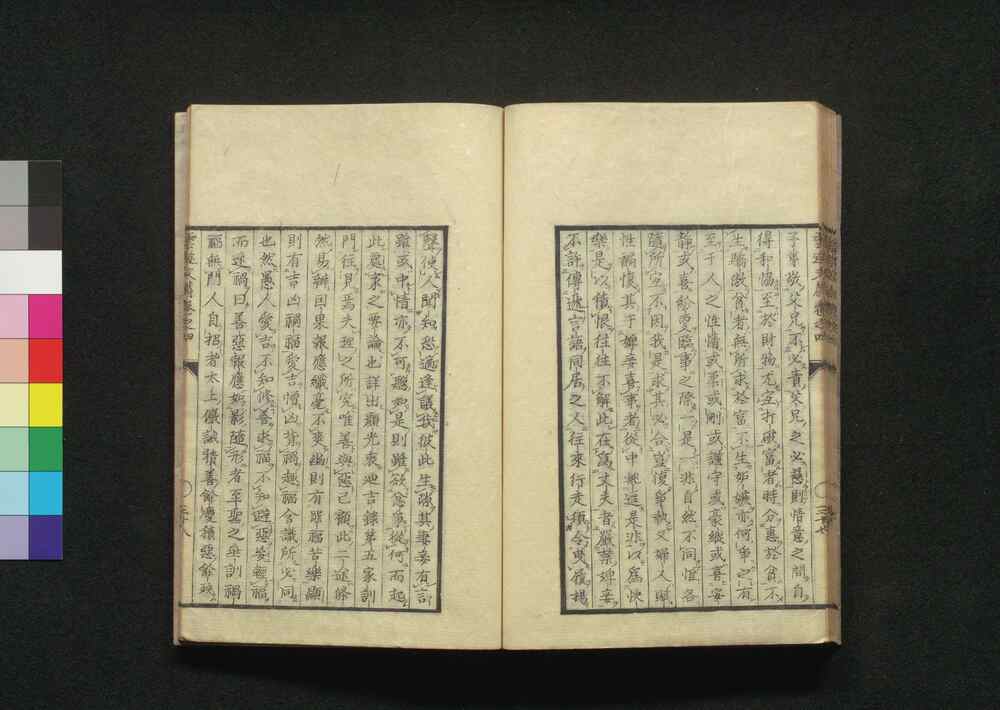 子專敬父兄不必責父兄之必慈則情意之間自
得和協至於財物尤宜打破富者時分惠於貧不
生驕敖貧者無所求於富不生妬嫉亦何爭之有
至于人之性情或柔或剛或謹守或豪縱或喜安
靜或喜紛更臨事之際一是一非自然不同惟各
隨所宜不因我是求其必合豈復爭執又婦人賦
性褊懷其于婢妾喜事者從中搬逗是非以為快
樂是以懷恨往往不解此在為丈夫者嚴禁婢妾
不許傳遞言語同居之人往來行走須令曳履揚
聲使人聞知恐適逢議我彼此生疑其妻妾有言
雖或中情亦不可聽如是則雖欲忿爭從何而起
此治家之要論也詳出顏光衷迪吉錄第五家訓
門往見焉夫理之所究唯善與惡已顧此二途條
然易辨因果報應纖毫不爽幽則有罪福苦樂顯
則有吉凶禍福愛吉憎凶背禍趣福含識所必同
也然愚人愛吉不知修善求福不知避惡妄祖福
而逐禍曰善惡報應如影隨形者至聖之垂訓禍
福無門人自招者太上儆誡積善餘慶積惡餘殃